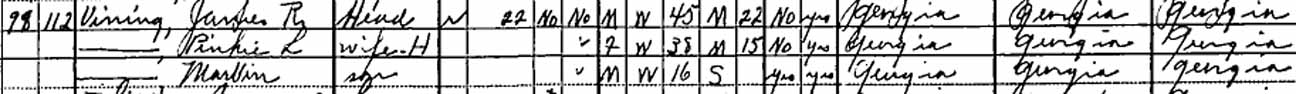 98 112 Vining, James R Head 22 No No M W 45 M 22 No yes Georgia Georgia Georgia
Pinkie L wife-H v F W 38 M 15 No yes Georgia Georgia Georgia
Marvin son v M W 16 S yes yes Georgia Georgia Georgia